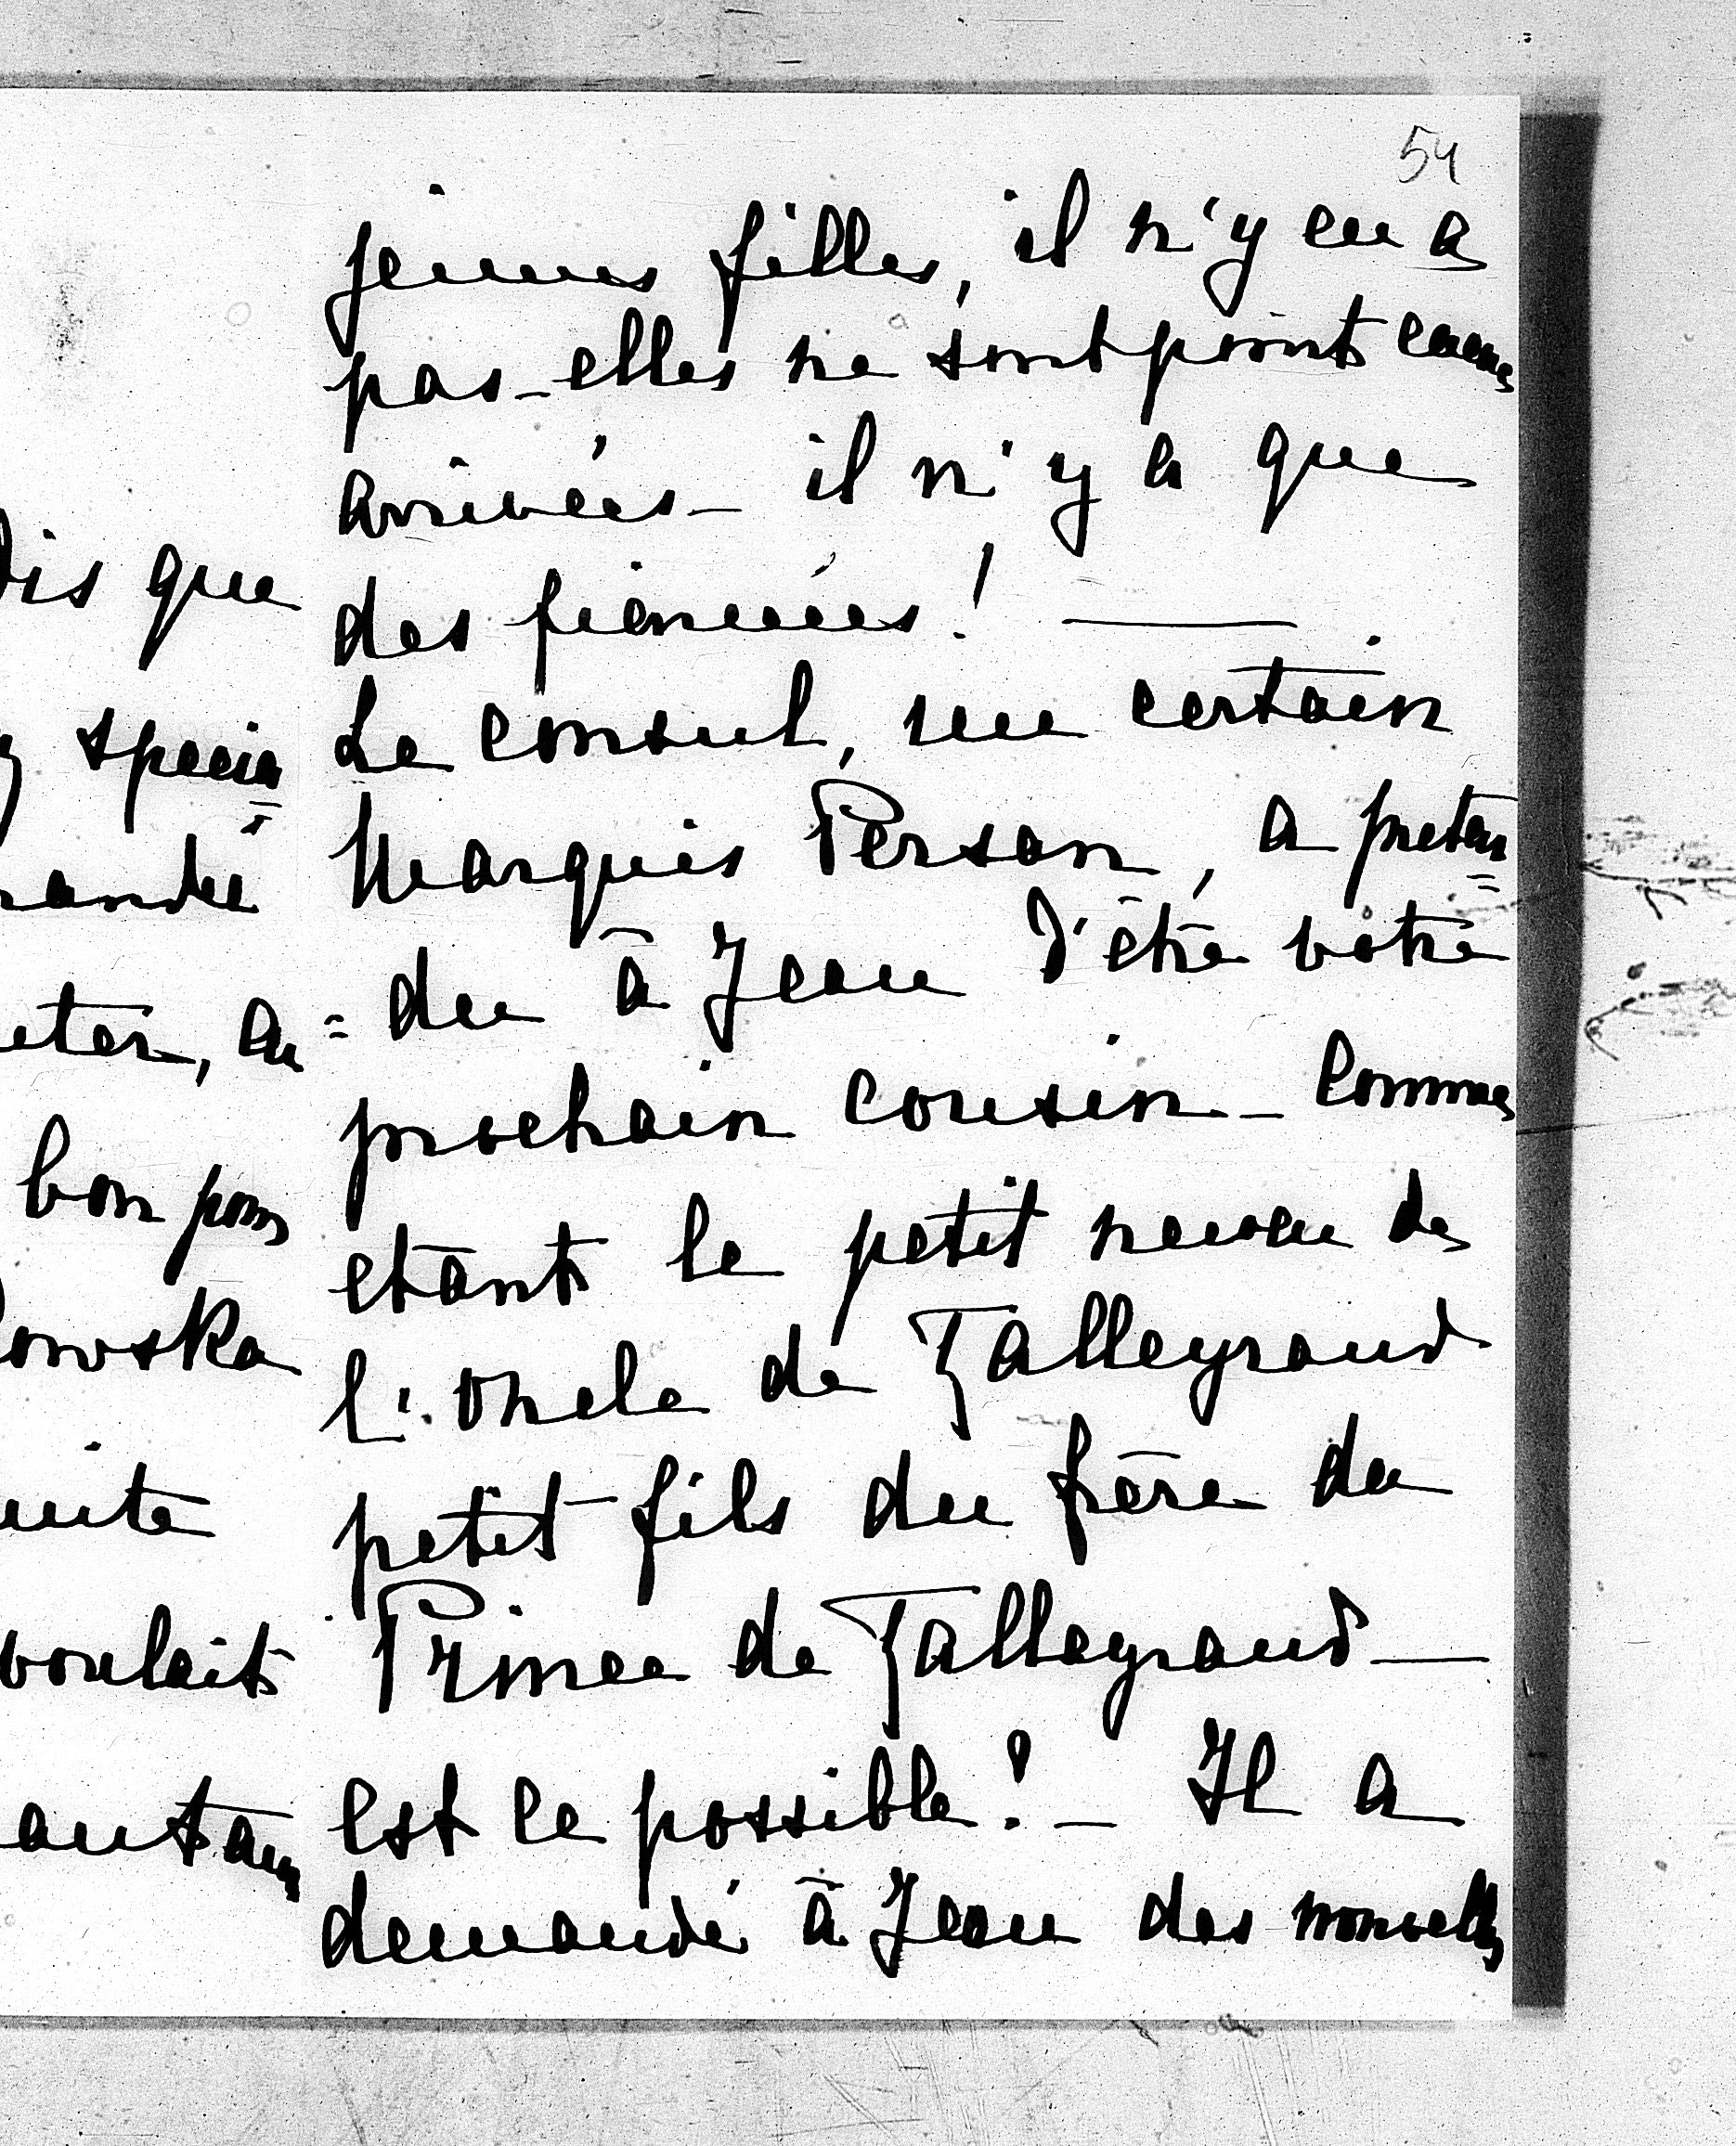 54
jeunes filles, il n'y en a
pas_ elles ne sont point encore
arrivées_ il n'y a que
des fiancées! —
Le consul, un certain
Marquis Persan, a preten
= du à Jean d'être votre
prochain cousin_ comme
etant le petit neveu de
l'oncle de Talleyrand
petit fils du frère du
Prince de Talleyrand_
est ce possible!_ Il a
demandé à Jean des nouvelles
dis que
specia
=
eter, au
bon pour
owska
uite
voulait